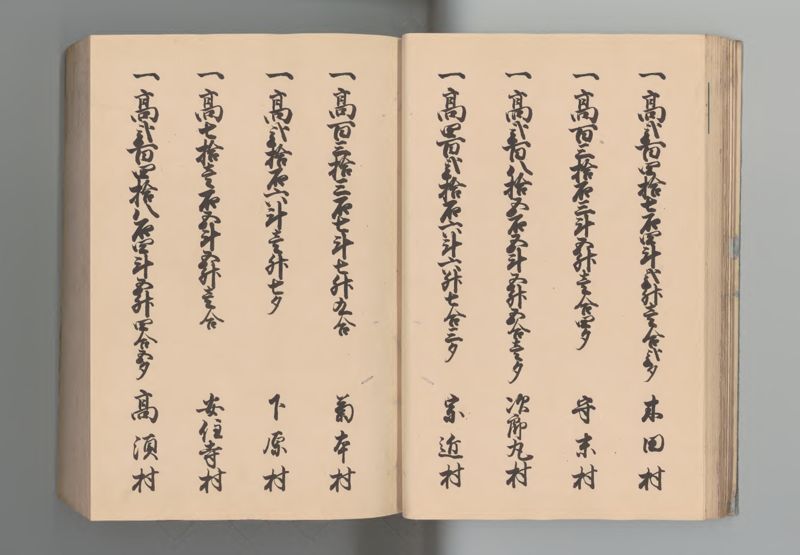 一高弐百四拾七石四斗弐升壱合弐夕 本田村
一高百三拾石三斗五升壱合四夕 守末村
一高弐百八拾五石五斗五升五合壱夕 次郎丸村
一高四百弐拾石六斗六升七合三夕 家近村
一高百三拾三石七斗七升九合 菊本村
一高弐拾石六斗壱升七夕 下原村
一高七拾壱石五斗五升壱合 安住寺村
一高弐百四拾八石四斗五升四合五夕 高須村